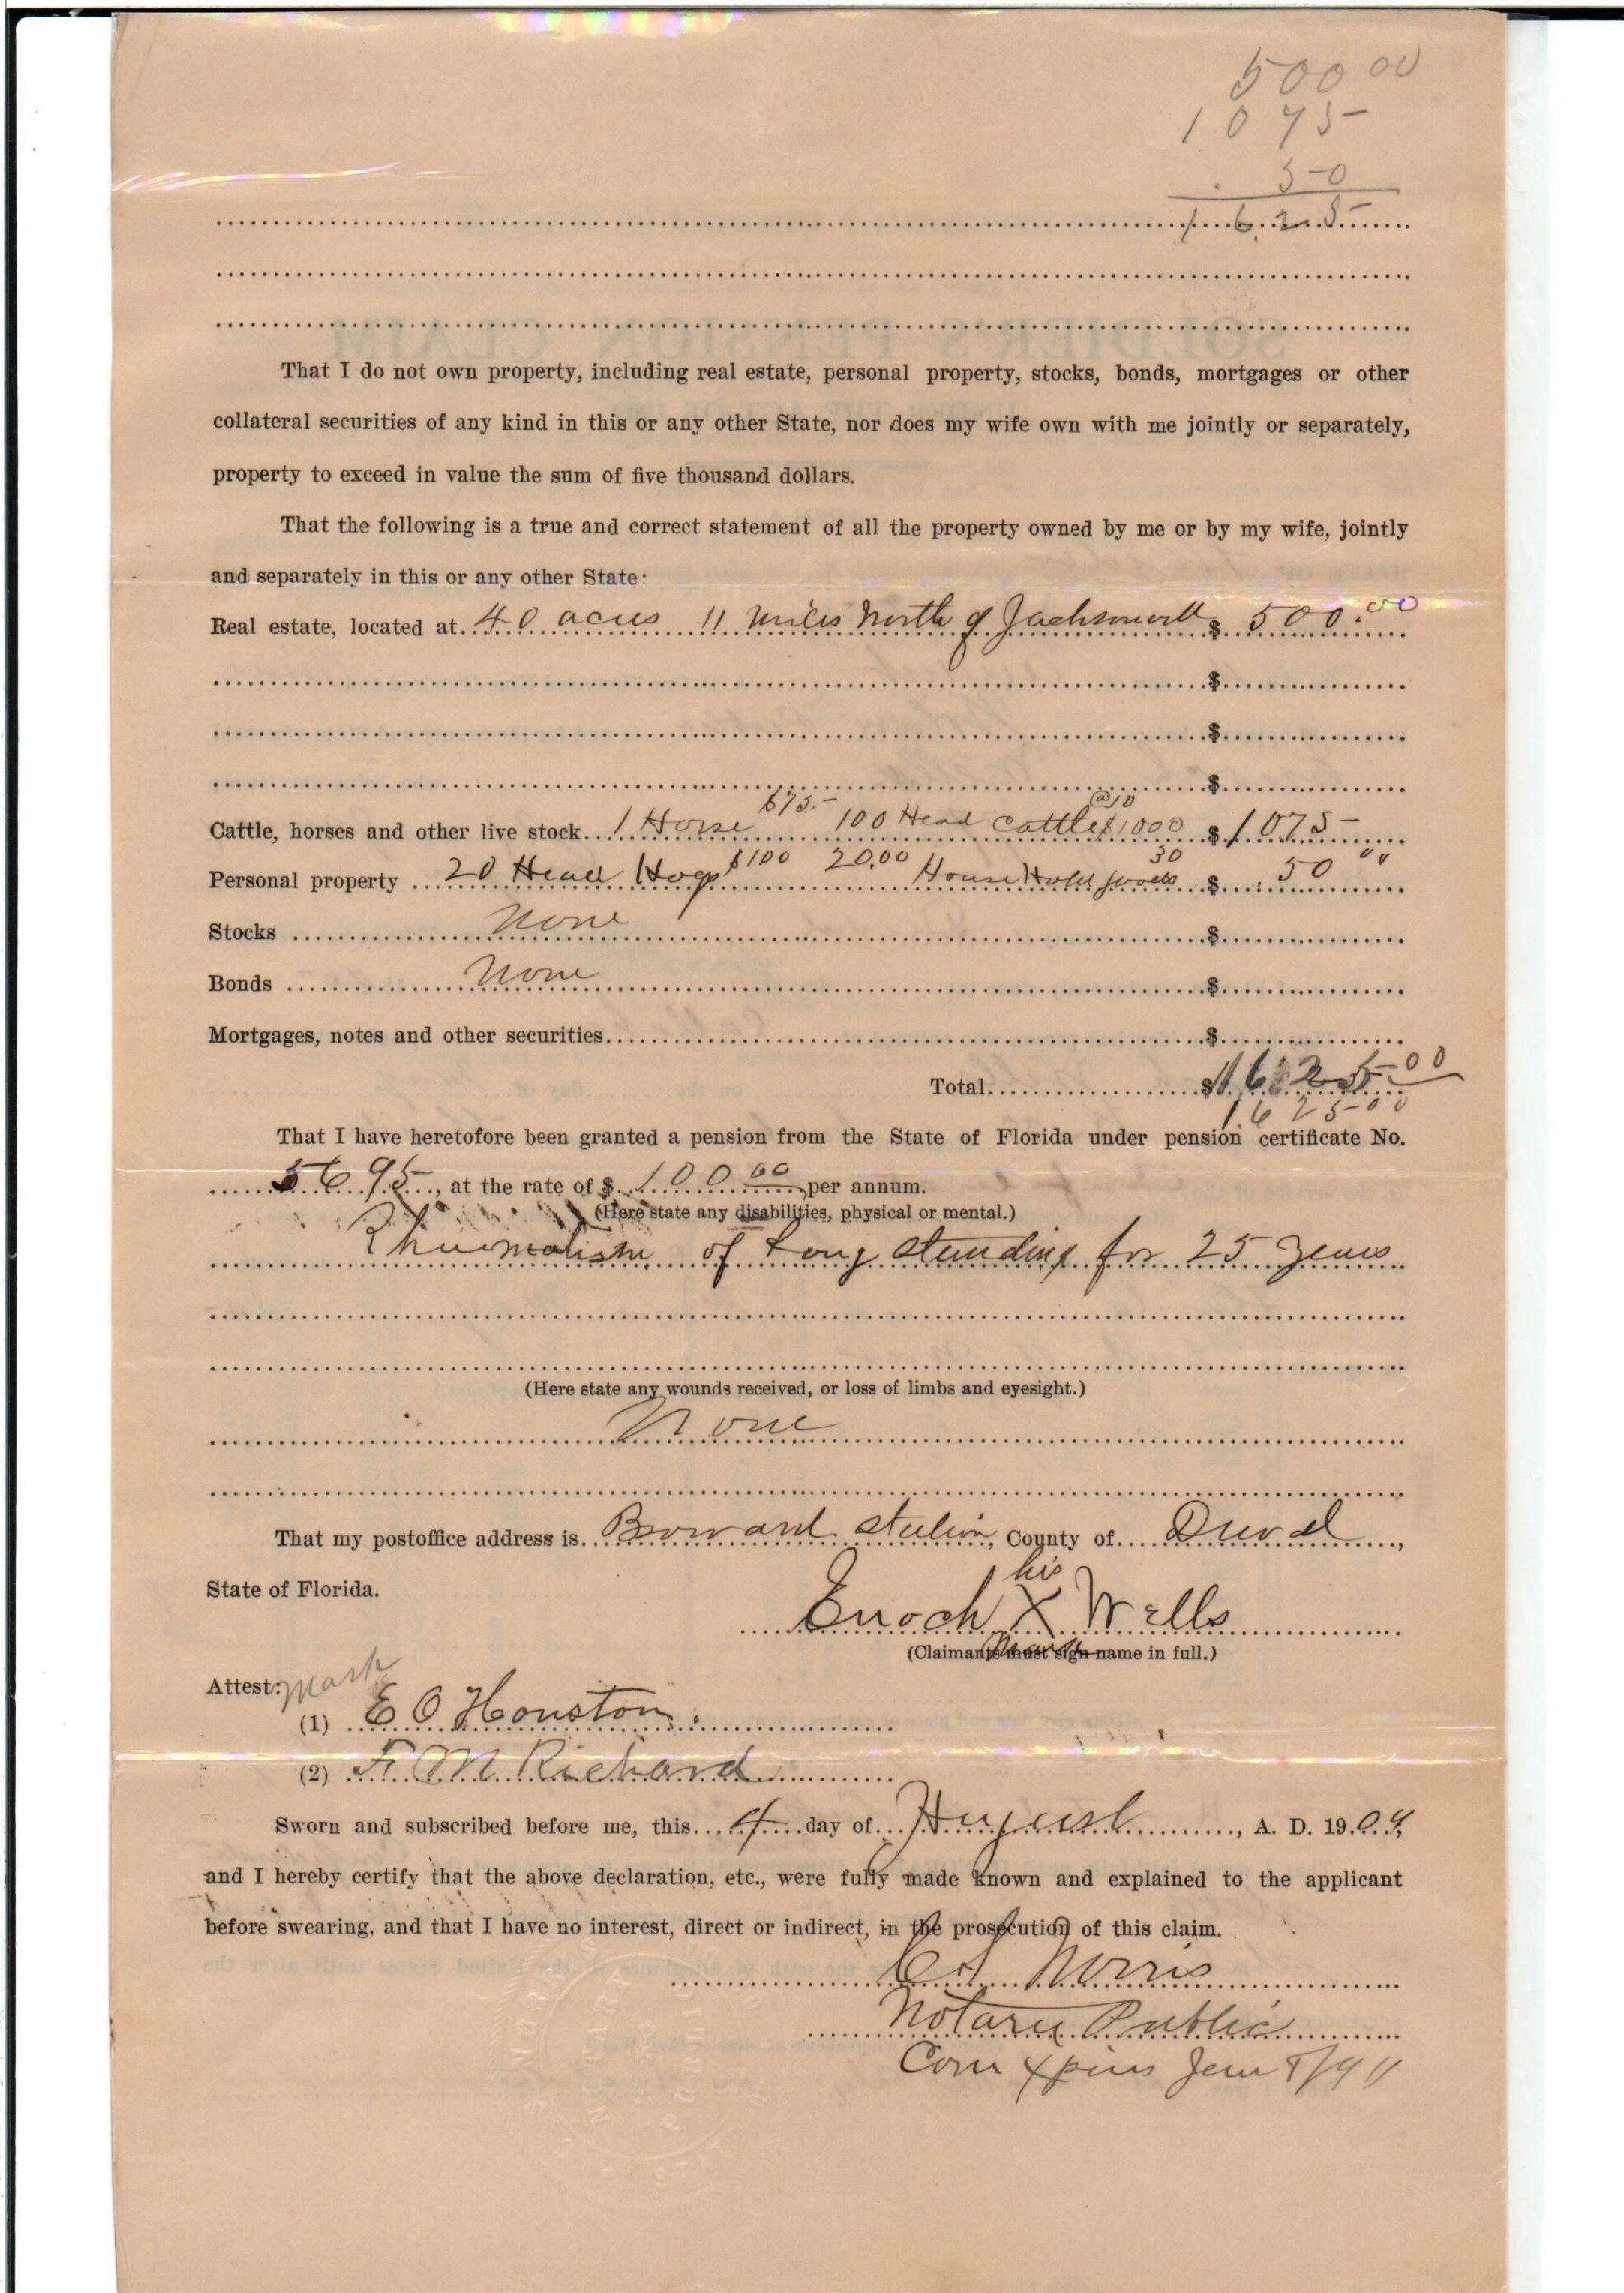 500 00
1075
50
1625
That I do not own property, including real estate, personal property, stocks, bonds, mortgages or other
collateral securities of any kind in this or any other State, nor does my wife own with me jointly or separately,
property to exceed in value the sum of five thousand dollars.
That the following is a true and correct statement of all the property owned by me or by my wife, jointly
and separately in this or any other State:
Real estate, located at 40 acres 11 miles North of Jacksonville $ 500.00
$
$
$
Cattle, horses and other live stock 1 Horse $75.- 100 Head Cattle @10 $1000 $ 1075-
Personal property 20 Head Hogs $100 20.00 House Hold goods 30 $ 50 00
Stocks None $
Bonds None $
Mortgages, notes and other securities $
Total $1625-00
1625-00
That I have heretofore been granted a pension from the State of Florida under pension certificate No.
5695, at the rate of $ 100 00 per annum.
(Here state any disabilities, physical or mental.)
Rhuematism of Long standing for 25 years
(Here state any wounds received, or loss of limbs and eyesight.)
None
That my postoffice address is Broward Station, County of Duval,
State of Florida.
his
Enoch X Wells
mark
(Claimants must sign name in full.)
Attest: mark
(1) E O Houston
(2) F. M Richard
Sworn and subscribed before me, this 4 day of August, A. D. 1909,
and I hereby certify that the above declaration, etc., were fully made known and explained to the applicant
before swearing, and that I have no interest, direct or indirect, in the prosecution of this claim.
Norris
Notary Public
Com Xpires Jan